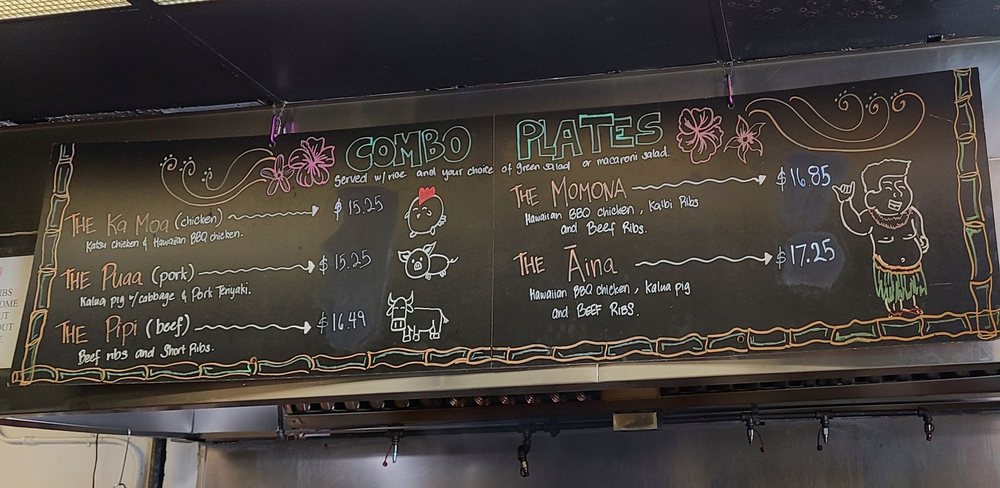 COMBO PLATES
Served w/ rice and your choice of green salad or macaroni salad.
THE Ka Moa (chicken) $15.25
Katsu chicken & Hawaiian BBQ chicken.
THE Puaa (pork) $15.25
Kalua pig w/cabbage & Pork Teriyaki.
THE Pipi (beef) $16.49
Beef ribs and Short Ribs.
THE MOMONA $16.85
Hawaiian BBQ chicken, Kalbi Ribs
and Beef Ribs.
THE Āina $17.25
Hawaiian BBQ chicken, Kalua pig
and BEEF RIBS.